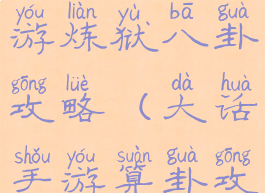 yóu liàn yù bā guà
游炼狱八卦
gōng lüè dà huà
攻略（大话
shǒu yóu suàn guà gōng
手游算卦攻